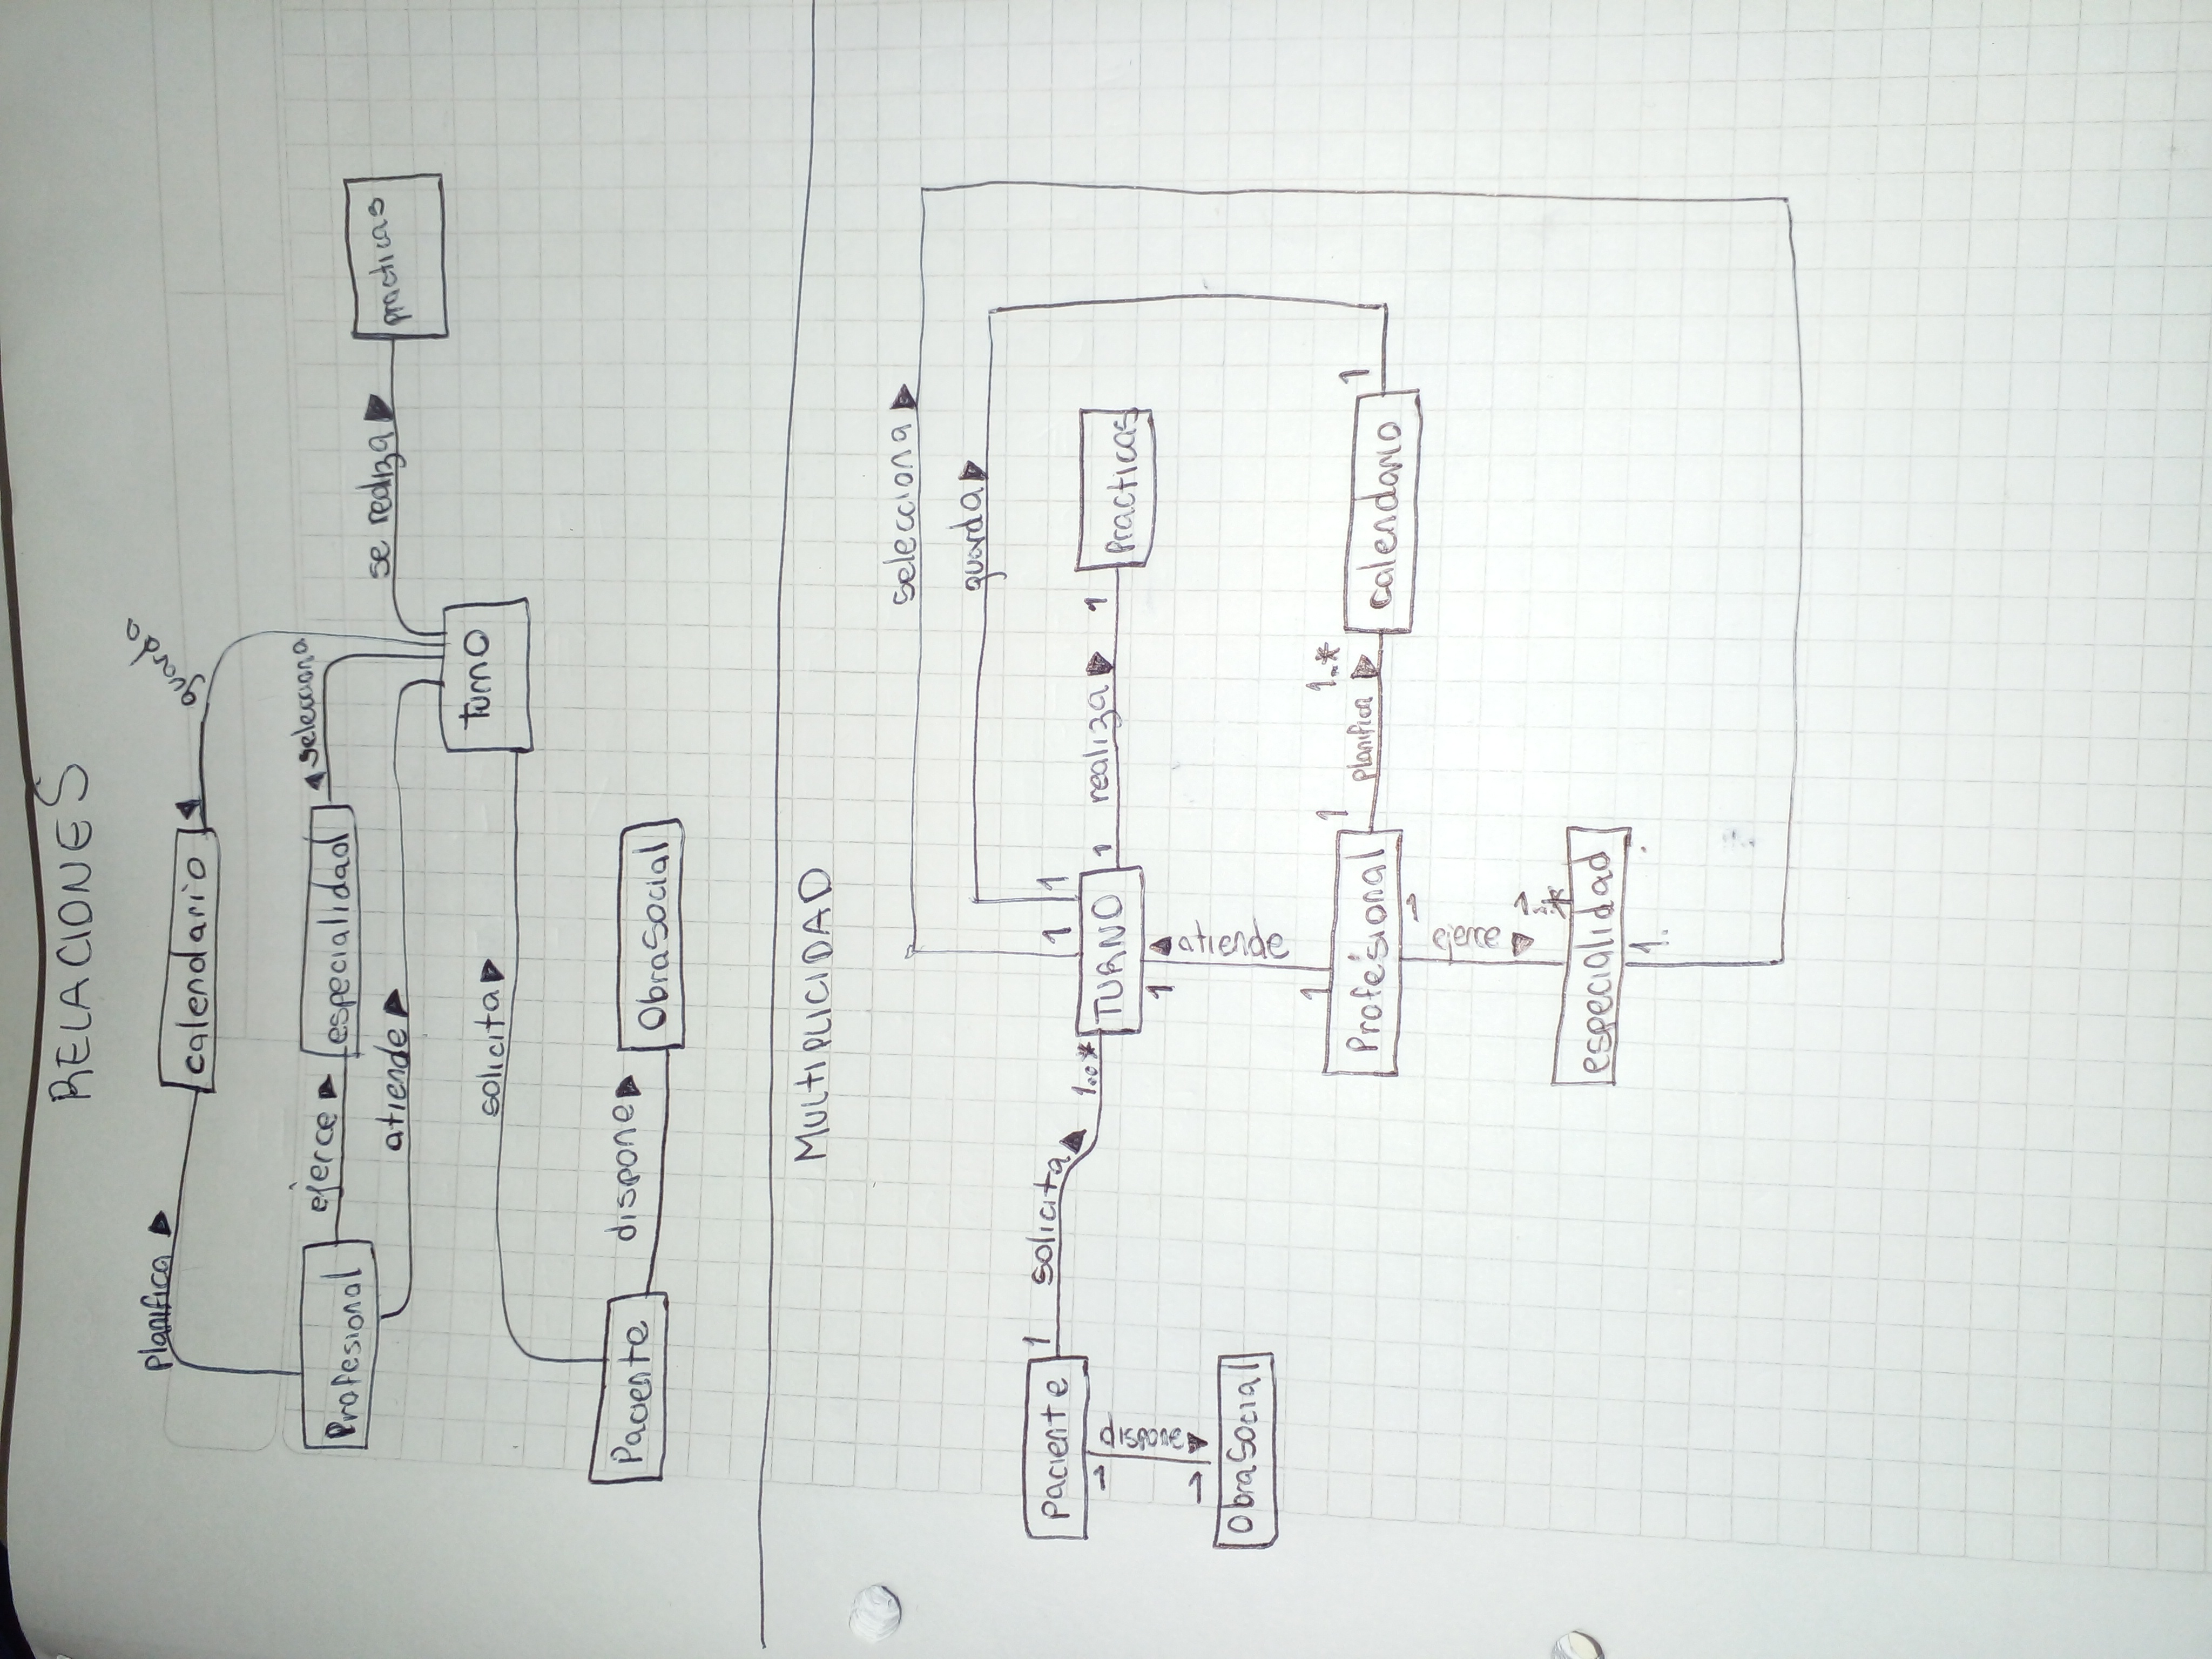 RELACIONES
planifica
guarda
calendario
selecciona
ejerce
especialidad
Profesional
se realiza
practicas
atiende
Turno
solicita
dispone
Paciente
ObraSocial
MULTIPLICIDAD
selecciona
guarda
paciente
1
solicita
1..*
1
1
TURNO
1
realiza
1
Practicas
1
dispone
1
ObraSocial
1
atiende
1
Profesional
1
planifica
1..*
calendario
1
1
ejerce
1..*
especialidad
1.